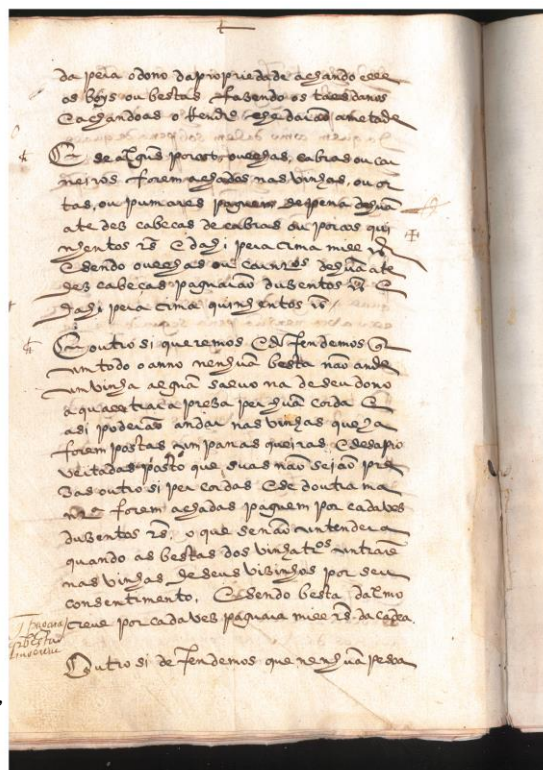 da pera o dono da propriedade achando elle
os boys ou bestas fazendo os taes danos
E achandoas o Rendro lhe darão ametade
E se alguns porcos, ovelhas, cabras ou car
neiros forem achados nas vinhas, ou or
tas, ou pumares paguem de pena de huã
ate dez cabeças de cabras ou porcos qui
nhentos rs E dahi pera cima mill rs
E sendo ovelhas ou carnros de huã ate
dez cabeças paguarão duzentos rs E
dahi pera cima quinhentos rs
E outro si queremos E defendemos q
em todo o anno nenhuã besta não ande
em vinha alguã salvo na de seu dono
a qual trara presa per huã corda E
asi poderão andar nas vinhas que ja
forem postas em
posto que suas não sejão pre
sas outro si per cordas E se doutra ma
nra forem achadas paguem por cada ves
duzentos rs, o que se não entendera
quando as bestas dos vinhatros entrarẽ
nas vinhas de seus visinhos por seu
consentimento, E sendo besta dalmo
creve por cada ves paguara mill rs da cadea.
Outro si defendemos que nenhuã pesoa